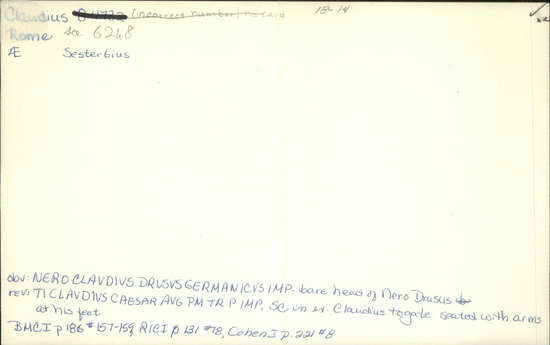 Claudius (incorrect number) no card 15-14
Rome see 6248
Æ Sestertius
obv: NERO CLAVDIVS DRVSVS GERMANICVS IMP. bare head of Nero Drusus
rev: TI CLAVDIVS CAESAR AVG PM TR P IMP. SC in ex. Claudius togate seated with arms
at his feet
BMC I p 186 #157-159, RIC I p 131 #78, Cohen I p. 221 #8